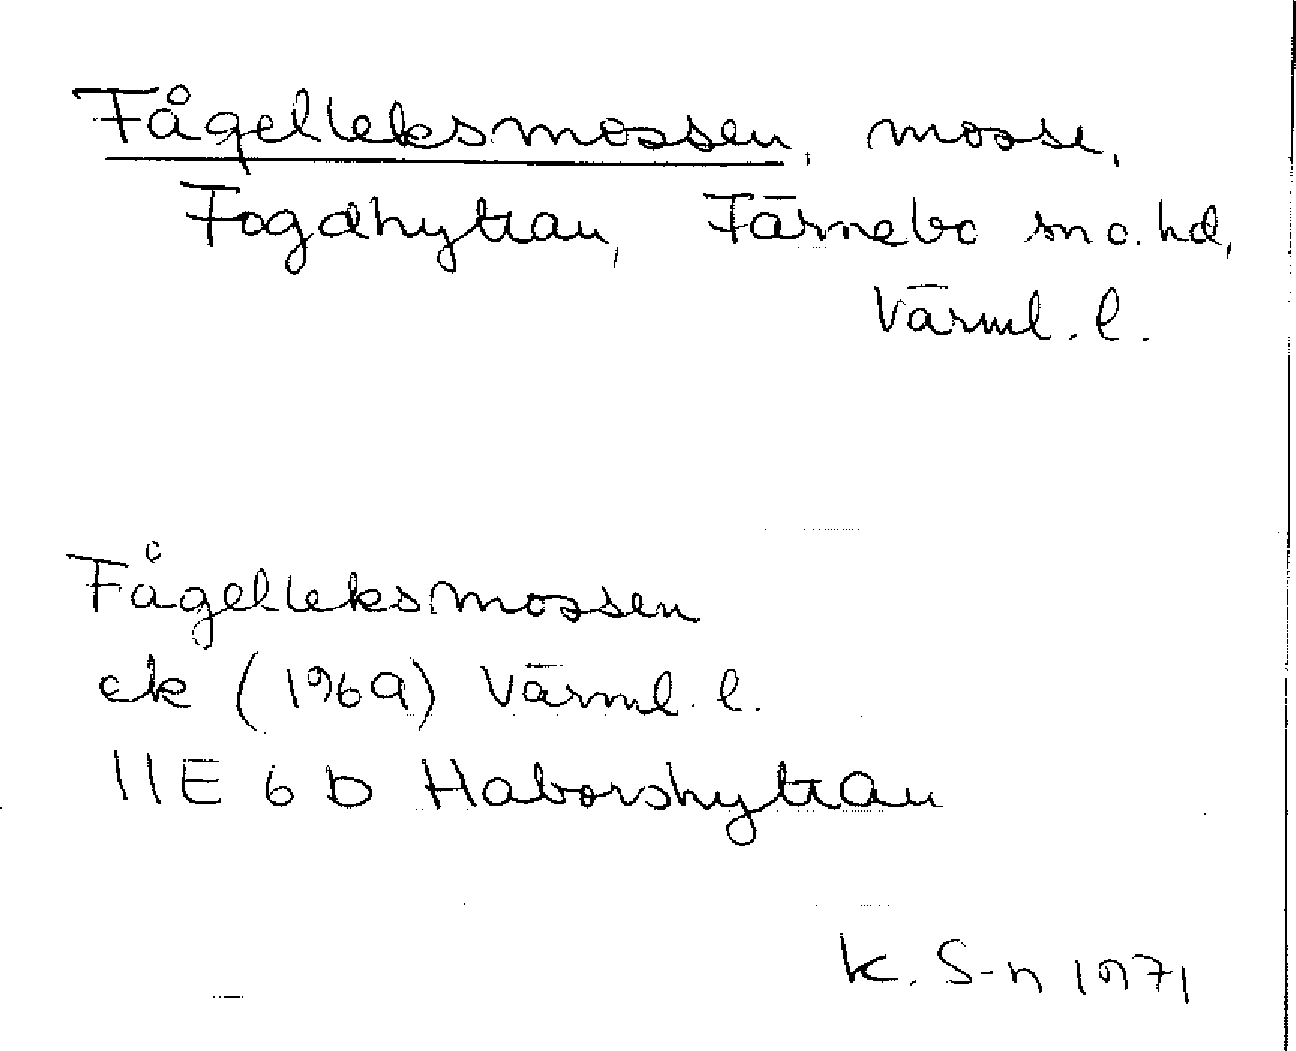 Fågelleksmossen, mosse,
Fogdhyttan, Färnebo sn o. hd,
Värml. l.
Fågelleksmossen
ek (1969) Värml. l.
11E 6 b Haborshyttan
K. S-n 1971